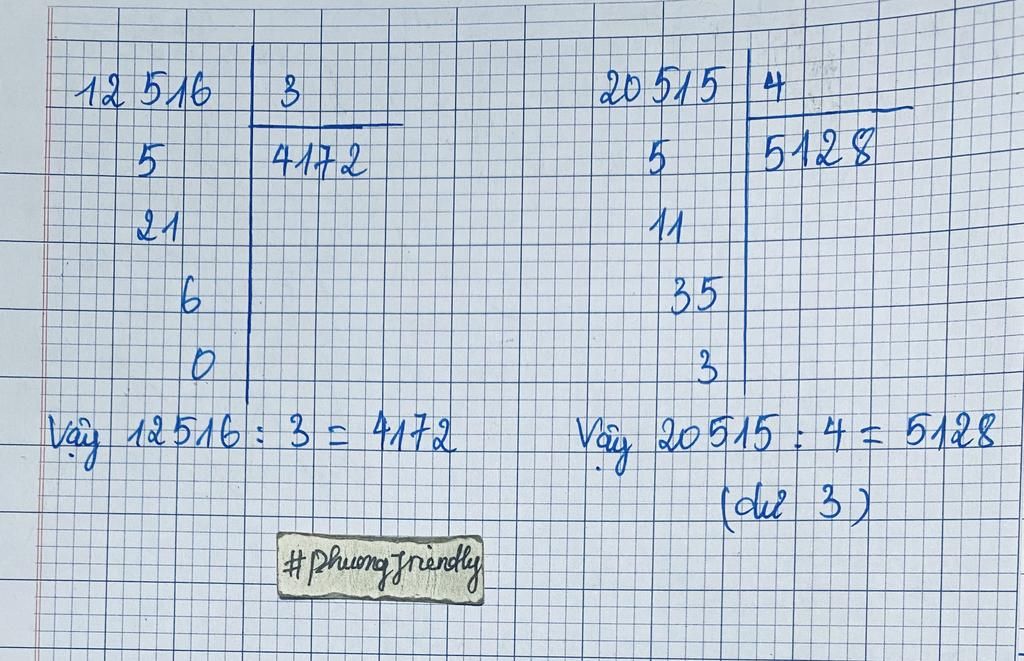 12 516 3
5 4172
21
6
0
Vậy 12516 : 3 = 4172
20 515 4
5 5128
11
35
3
Vậy 20 515 : 4 = 5128
(dư 3)
#phuongfriendly